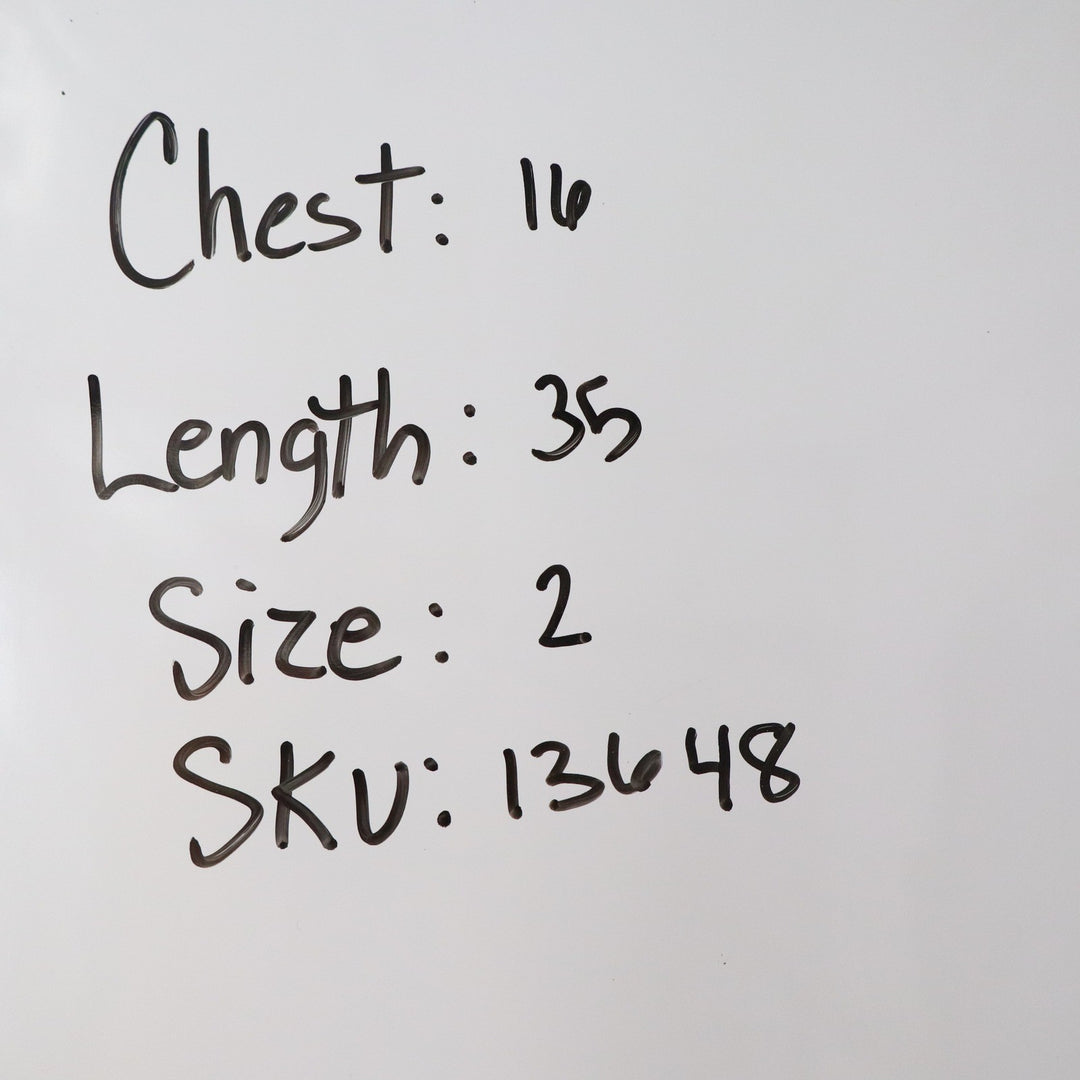 Chest: 16
Length: 35
Size: 2
SKU: 13648